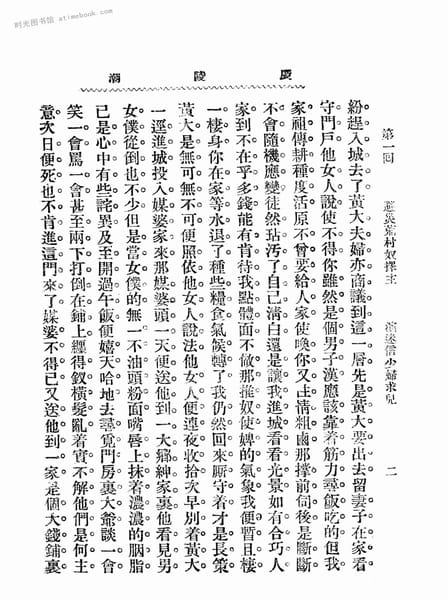 廣陵潮
第一回 避災荒村奴擇主 演迷信少婦求兒 二
紛趕入城去了黃大夫婦亦商議到這一層先是黃大要出去留妻子在家看
守門戶他女人說使不得你雖然是個男子漢應該靠着筋力尋飯吃的但我
家祖傳耕種度活原不曾要給人家使喚你又生得粗鹵那撐前伺後是斷斷
不會隨機應變徒然玷汚了自己淸白還是讓我進城看看光景如有合巧人
家到不在乎多錢能有肯待我點體面不做那推奴使婢的氣象我便暫且棲
一棲身你在家等水退了種些糧食氣候轉了我仍然回來厮守着才是長策
黃大是無可無不可便照依他女人說法他女人便連夜收拾次早別着黃大
一逕進城投入媒婆家來那媒婆頭一天便送他到一大鄉紳家裏他看見男
女僕從倒也不少但是當女僕的無一不油頭粉面嘴唇上抹着濃濃的胭脂
已是心中有些詫異及至開過午飯便嬉天哈地去尋覓門房裏大爺談一會
笑一會罵一會甚至兩下打倒在鋪上纏得釵橫髮亂着實不解他們是何主
意次日便死也不肯進這門來了媒婆不得已又送他到一家是個大錢鋪裏
时光图书馆 atimebook.com